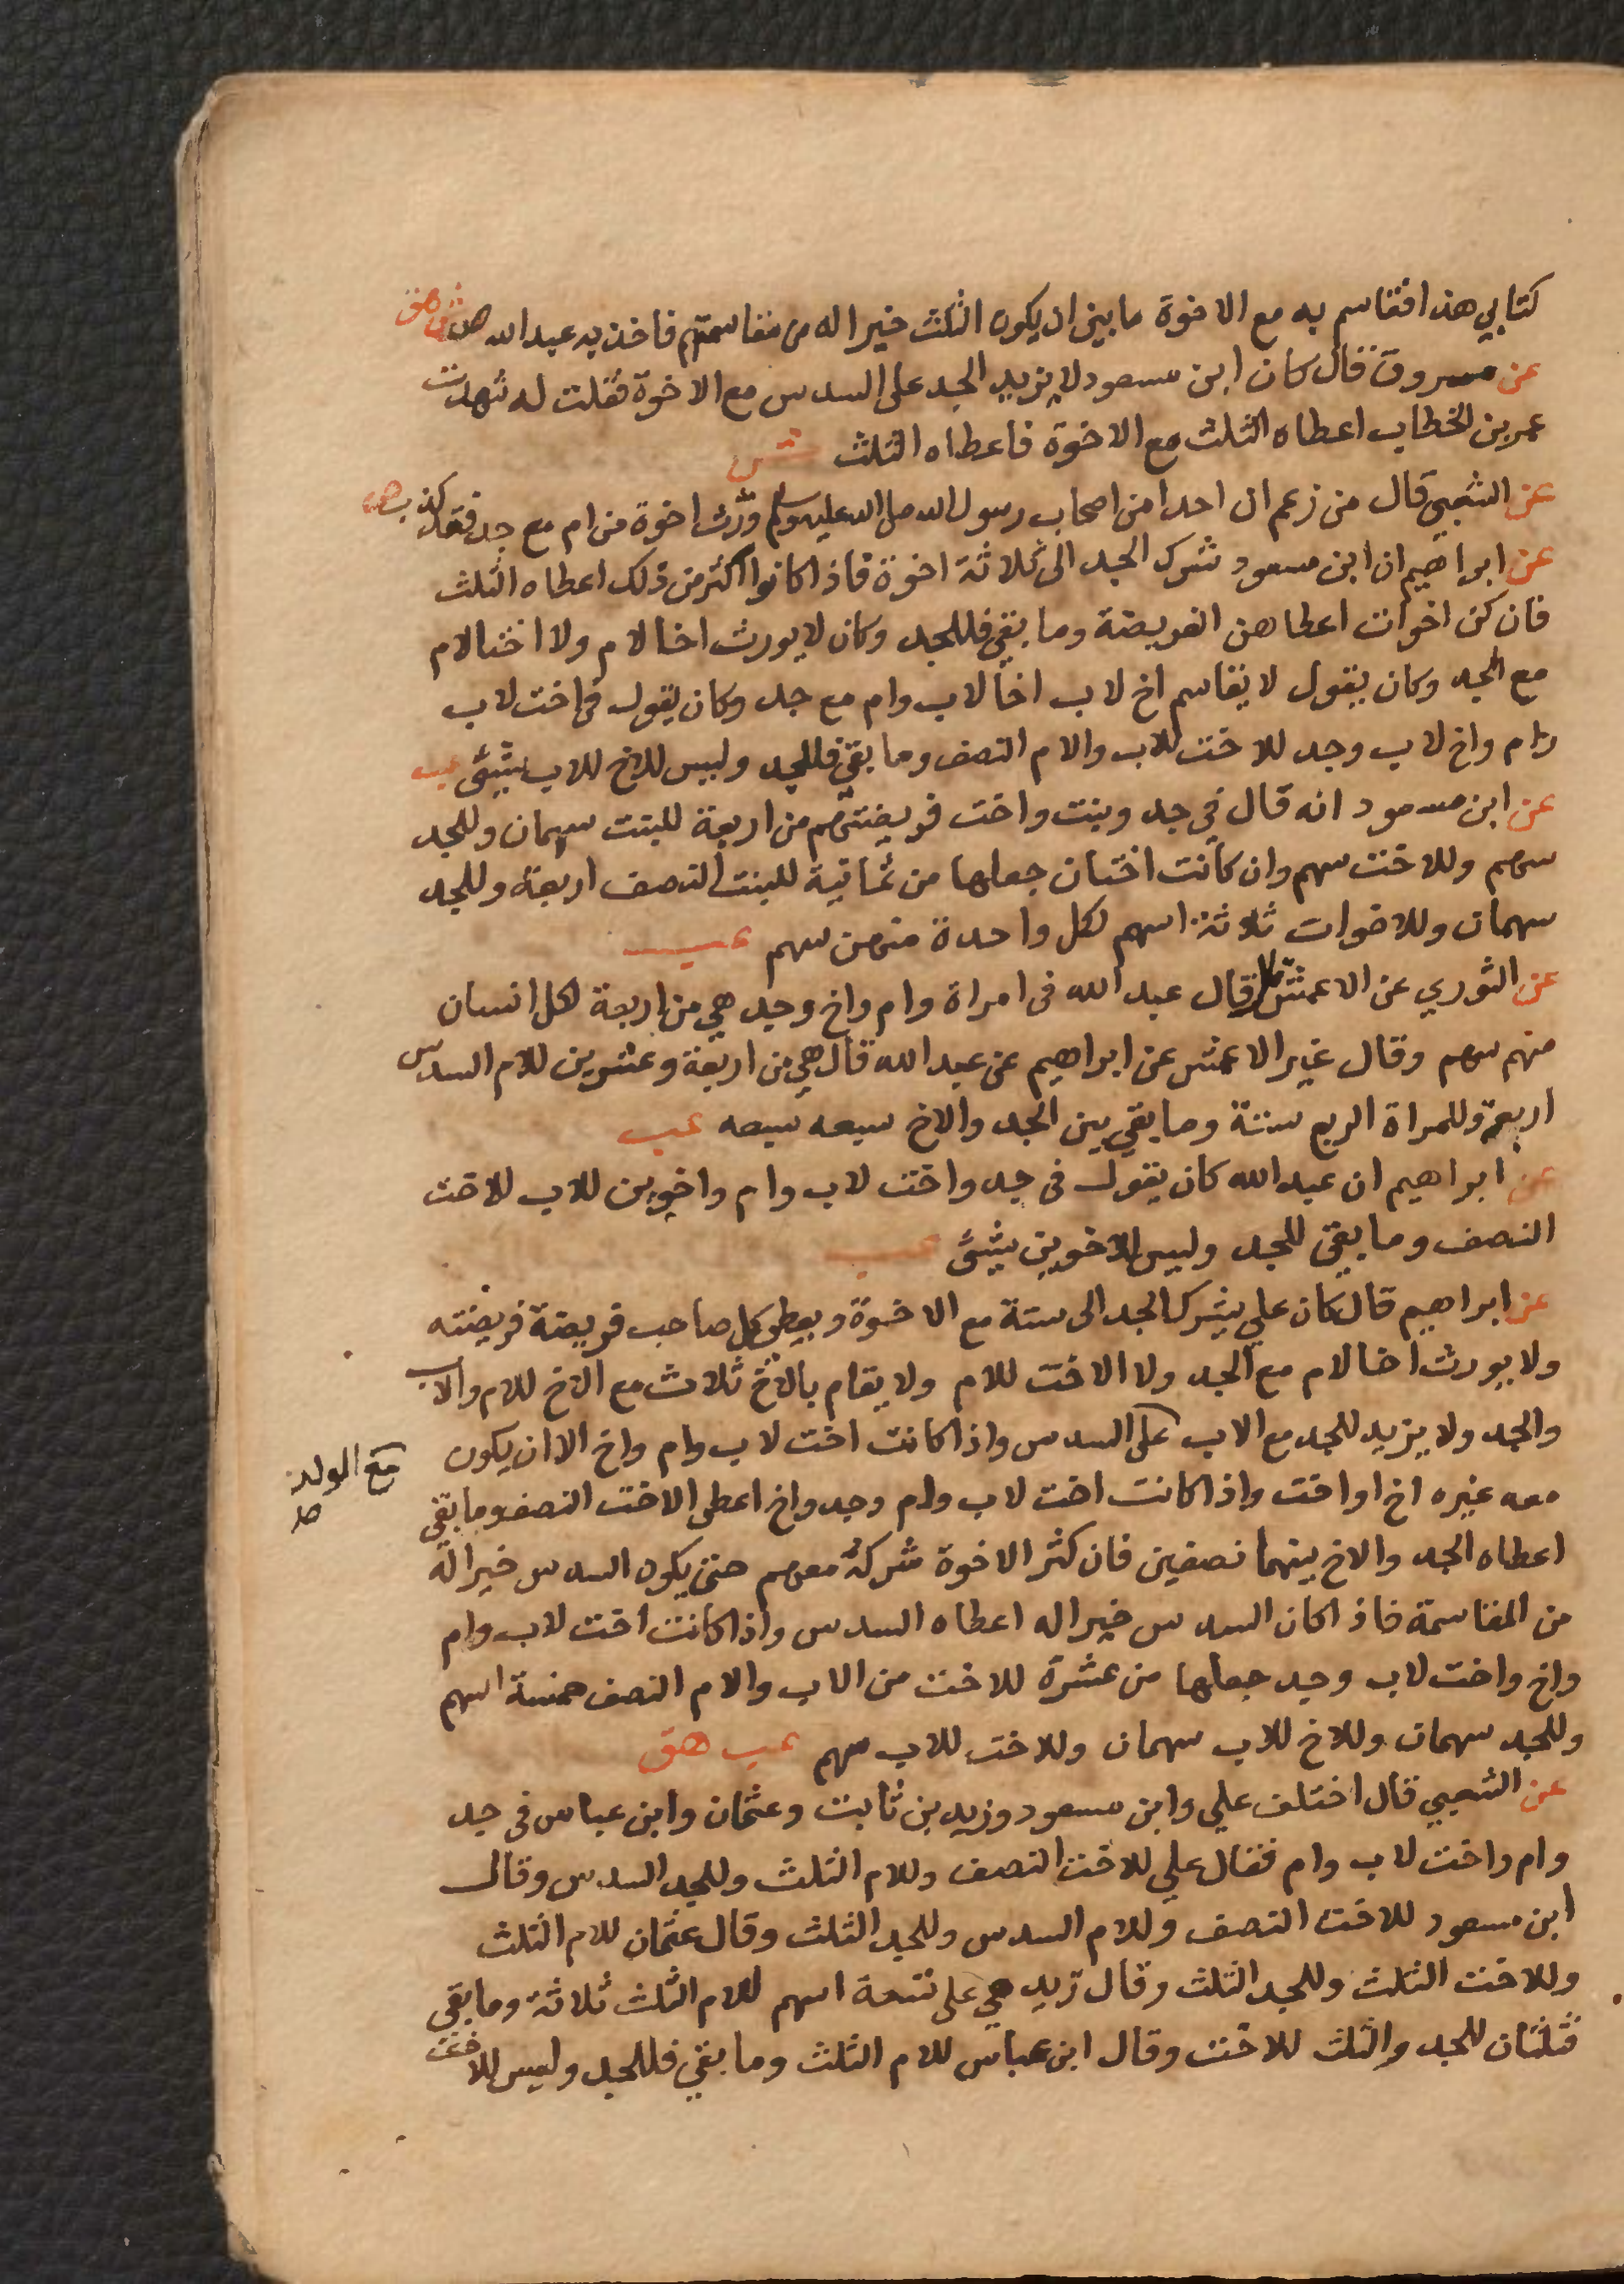 كتابي هذا فقاسم به مع الاخوة ما بين ان يكون الثلث خيرا له من مقاسمتهم فاخذ به عبد الله ص ش هق
عن مسروق قال كان ابن مسعود لا يزيد الجد على السدس مع الاخوة فقلت له شهدت
عمر بن الخطاب اعطاه الثلث مع الاخوة فاعطاه الثلث ش
عن الشعبي قال من زعم ان احدا من اصحاب رسول الله صلى الله عليه وسلم ورّث اخوة من ام مع جد فقد كذب ص
عن ابراهيم ان ابن مسعود شرك الجد الى ثلاثة اخوة فاذا كانوا اكثر من ذلك اعطاه الثلث
فان كن اخوات اعطاهن الفريضة وما بقي فللجد وكان لا يورث اخا لام ولا اختا لام
مع الجد وكان يقول لا يقاسم اخ لاب اخا لاب وام مع جد وكان يقول في اخت لاب
وام واخ لاب وجد للاخت للاب والام النصف وما بقي فللجد وليس للاخ للاب شيئ عب
عن ابن مسعود انه قال في جد وبنت واخت فريضتهم من اربعة للبنت سهمان وللجد
سهم وللاخت سهم وان كانت اختان جعلها من ثمانية للبنت النصف اربعة وللجد
سهمان وللاخوات ثلاثة اسهم لكل واحدة منهن سهم عب
عن الثوري عن الاعمش قال قال عبد الله في امراة وام واخ وجد هي من اربعة لكل انسان
منهم سهم وقال غير الاعمش عن ابراهيم عن عبد الله قال هي من اربعة وعشرين للام السدس
اربعة وللمراة الربع ستة وما بقي بين الجد والاخ سبعه سبعه عب
عن ابراهيم ان عبد الله كان يقول في جد واخت لاب وام واخوين للاب للاخت
النصف وما بقي للجد وليس للاخوين شيئ عب
عن ابراهيم قال كان علي يشرك الجد الى ستة مع الاخوة ويعطي كل صاحب فريضة فريضته
ولا يورث اخا لام مع الجد ولا الاخت للام ولا يقام بالاخ ثلاث مع الاخ للام والاب
والجد ولا يزيد للجد مع الاب على السدس واذا كانت اخت لاب وام واخ الا ان يكون
مع الولد
صح
معه غيره اخ او اخت واذا كانت اخت لاب وام وجد واخ اعطى الاخت النصف وما بقي
اعطاه الجد والاخ بينهما نصفين فان كثر الاخوة شركه معهم حتى يكون السدس خيرا له
من المقاسمة فاذا كان السدس خيرا له اعطاه السدس واذا كانت اخت لاب وام
واخ واخت لاب وجد جعلها من عشرة للاخت من الاب والام النصف خمسة اسهم
وللجد سهمان وللاخ للاب سهمان وللاخت للاب سهم عب هق
عن الشعبي قال اختلف علي وابن مسعود وزيد بن ثابت وعثمان وابن عباس في جد
وام واخت لاب وام فقال علي للاخت النصف وللام الثلث وللجد السدس وقال
ابن مسعود للاخت النصف وللام السدس وللجد الثلث وقال عثمان للام الثلث
وللاخت الثلث وللجد الثلث وقال زيد هي على تسعة اسهم للام الثلث ثلاثة وما بقي
فثلثان للجد والثلث للاخت وقال ابن عباس للام الثلث وما بقي فللجد وليس للاخت